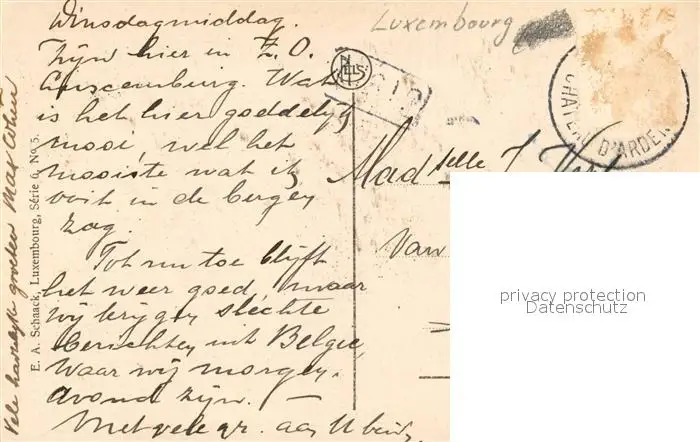 Winsdagmiddag.
Zijn hier in Z.O.
Luxemburg. Wat
is het hier goddelijk
mooi, wel het
mooiste wat ik
ooit in de bergen
zag.
Tot nu toe blijft
het weer goed, maar
wij krijgen slechte
berichten uit België,
waar wij morgen-
avond zijn. —
Met vele gr. aan U beide,
Vele hartelijke groeten Max Cohen
E. A. Schaack, Luxembourg, Série 6, No 5.
Luxembourg
NELS
CHATEAU D'ARDEN
Madselle J.
Van
privacy protection
Datenschutz